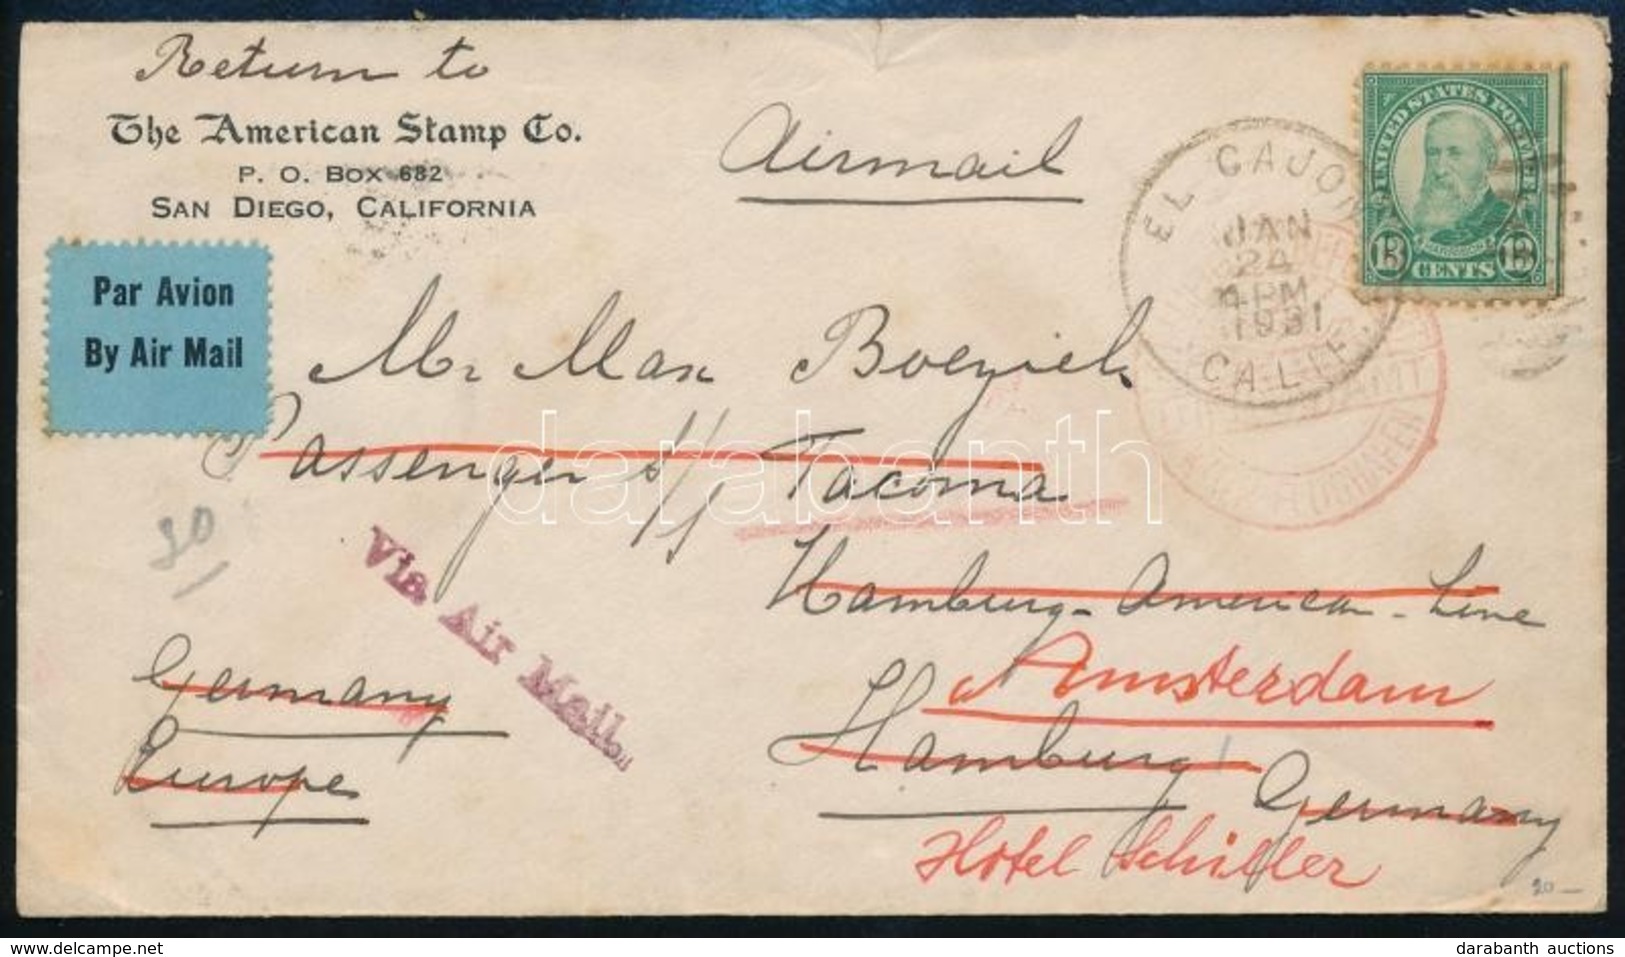 Return to
The American Stamp Co.
P. O. Box 682
San Diego, California
Airmail
EL CAJON
JAN
24
4 PM
1931
CALIF.
UNITED STATES POSTAGE
HARRISON
13 CENTS 13
Par Avion
By Air Mail
Mr. Max
Passenger s/s Tacoma
Hamburg-American-Line
Amsterdam
Hamburg
Germany
Hotel Schiller
Via Air Mail.
Germany
Europe
20
darabanth
darabanth auctions